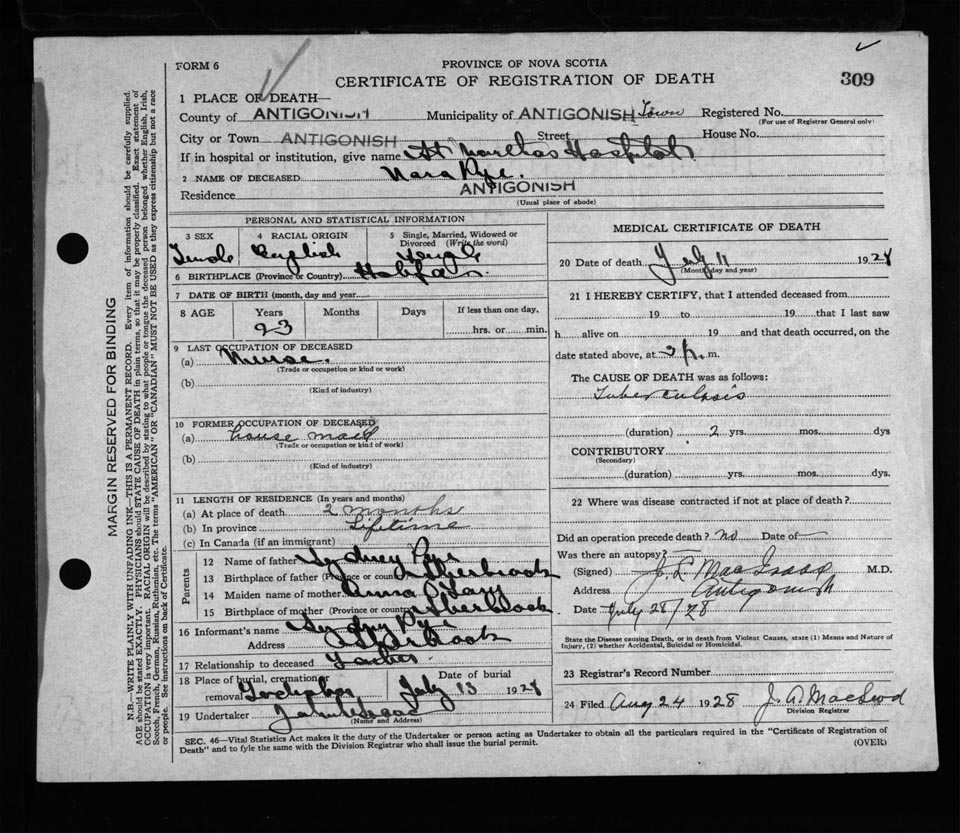 FORM 6
PROVINCE OF NOVA SCOTIA
CERTIFICATE OF REGISTRATION OF DEATH
309
1 PLACE OF DEATH—
County of ANTIGONISH Municipality of ANTIGONISH Town Registered No.
(For use of Registrar General only)
City or Town ANTIGONISH Street House No.
If in hospital or institution, give name St Marthas Hospital
2 NAME OF DECEASED Nora Pye.
Residence ANTIGONISH
(Usual place of abode)
PERSONAL AND STATISTICAL INFORMATION
3 SEX 4 RACIAL ORIGIN 5 Single, Married, Widowed or Divorced (Write the word)
Female English Single
6 BIRTHPLACE (Province or Country) Halifax
7 DATE OF BIRTH (month, day and year
8 AGE Years Months Days If less than one day,
23 hrs. or min.
9 LAST OCCUPATION OF DECEASED
(a) Nurse.
(Trade or occupation or kind or work)
(b)
(Kind of industry)
10 FORMER OCCUPATION OF DECEASED
(a) house maid
(Trade or occupation or kind of work)
(b)
(Kind of industry)
11 LENGTH OF RESIDENCE (In years and months)
(a) At place of death 2 months
(b) In province Lifetime
(c) In Canada (if an immigrant)
Parents
12 Name of father Sydney Pye
13 Birthplace of father (Province or country Sherbrook
14 Maiden name of mother Anna
15 Birthplace of mother (Province or country Sherbrook
16 Informant's name Sydney Pye
Address Sherbrook
17 Relationship to deceased Father
18 Place of burial, cremation, removal Date of burial
July 13 1928
19 Undertaker
(Name and Address)
MEDICAL CERTIFICATE OF DEATH
20 Date of death July 11 1928
(Month, day and year)
21 I HEREBY CERTIFY, that I attended deceased from
19 to 19 that I last saw
h alive on 19 and that death occurred, on the
date stated above, at 3 p. m.
The CAUSE OF DEATH was as follows:
Tuberculosis
(duration) 2 yrs. mos. dys
CONTRIBUTORY
(Secondary)
(duration) yrs. mos. dys.
22 Where was disease contracted if not at place of death?
Did an operation precede death? no Date of —
Was there an autopsy? —
(Signed) J. L. MacIsaac M.D.
Address Antigonish
Date July 28/28
State the Disease causing Death, or in death from Violent Causes, state (1) Means and Nature of
Injury, (2) whether Accidental, Suicidal or Homicidal.
23 Registrar's Record Number
24 Filed Aug 24 1928 J. A. MacLeod
Division Registrar
SEC. 46—Vital Statistics Act makes it the duty of the Undertaker or person acting as Undertaker to obtain all the particulars required in the "Certificate of Registration of
Death" and to fyle the same with the Division Registrar who shall issue the burial permit.
(OVER)
MARGIN RESERVED FOR BINDING
N.B.—WRITE PLAINLY WITH UNFADING INK—THIS IS A PERMANENT RECORD. Every item of information should be carefully supplied.
AGE should be stated EXACTLY. PHYSICIANS should STATE CAUSE OF DEATH in plain terms, so that it may be properly classified. Exact statement of
OCCUPATION is very important. RACIAL ORIGIN will be described by stating to what people or tongue the deceased person belonged whether English, Irish,
Scotch, French, German, Russian, Ruthenian, etc. The terms "AMERICAN" OR "CANADIAN" MUST NOT BE USED as they express citizenship but not a race
or people. See instructions on back of Certificate.